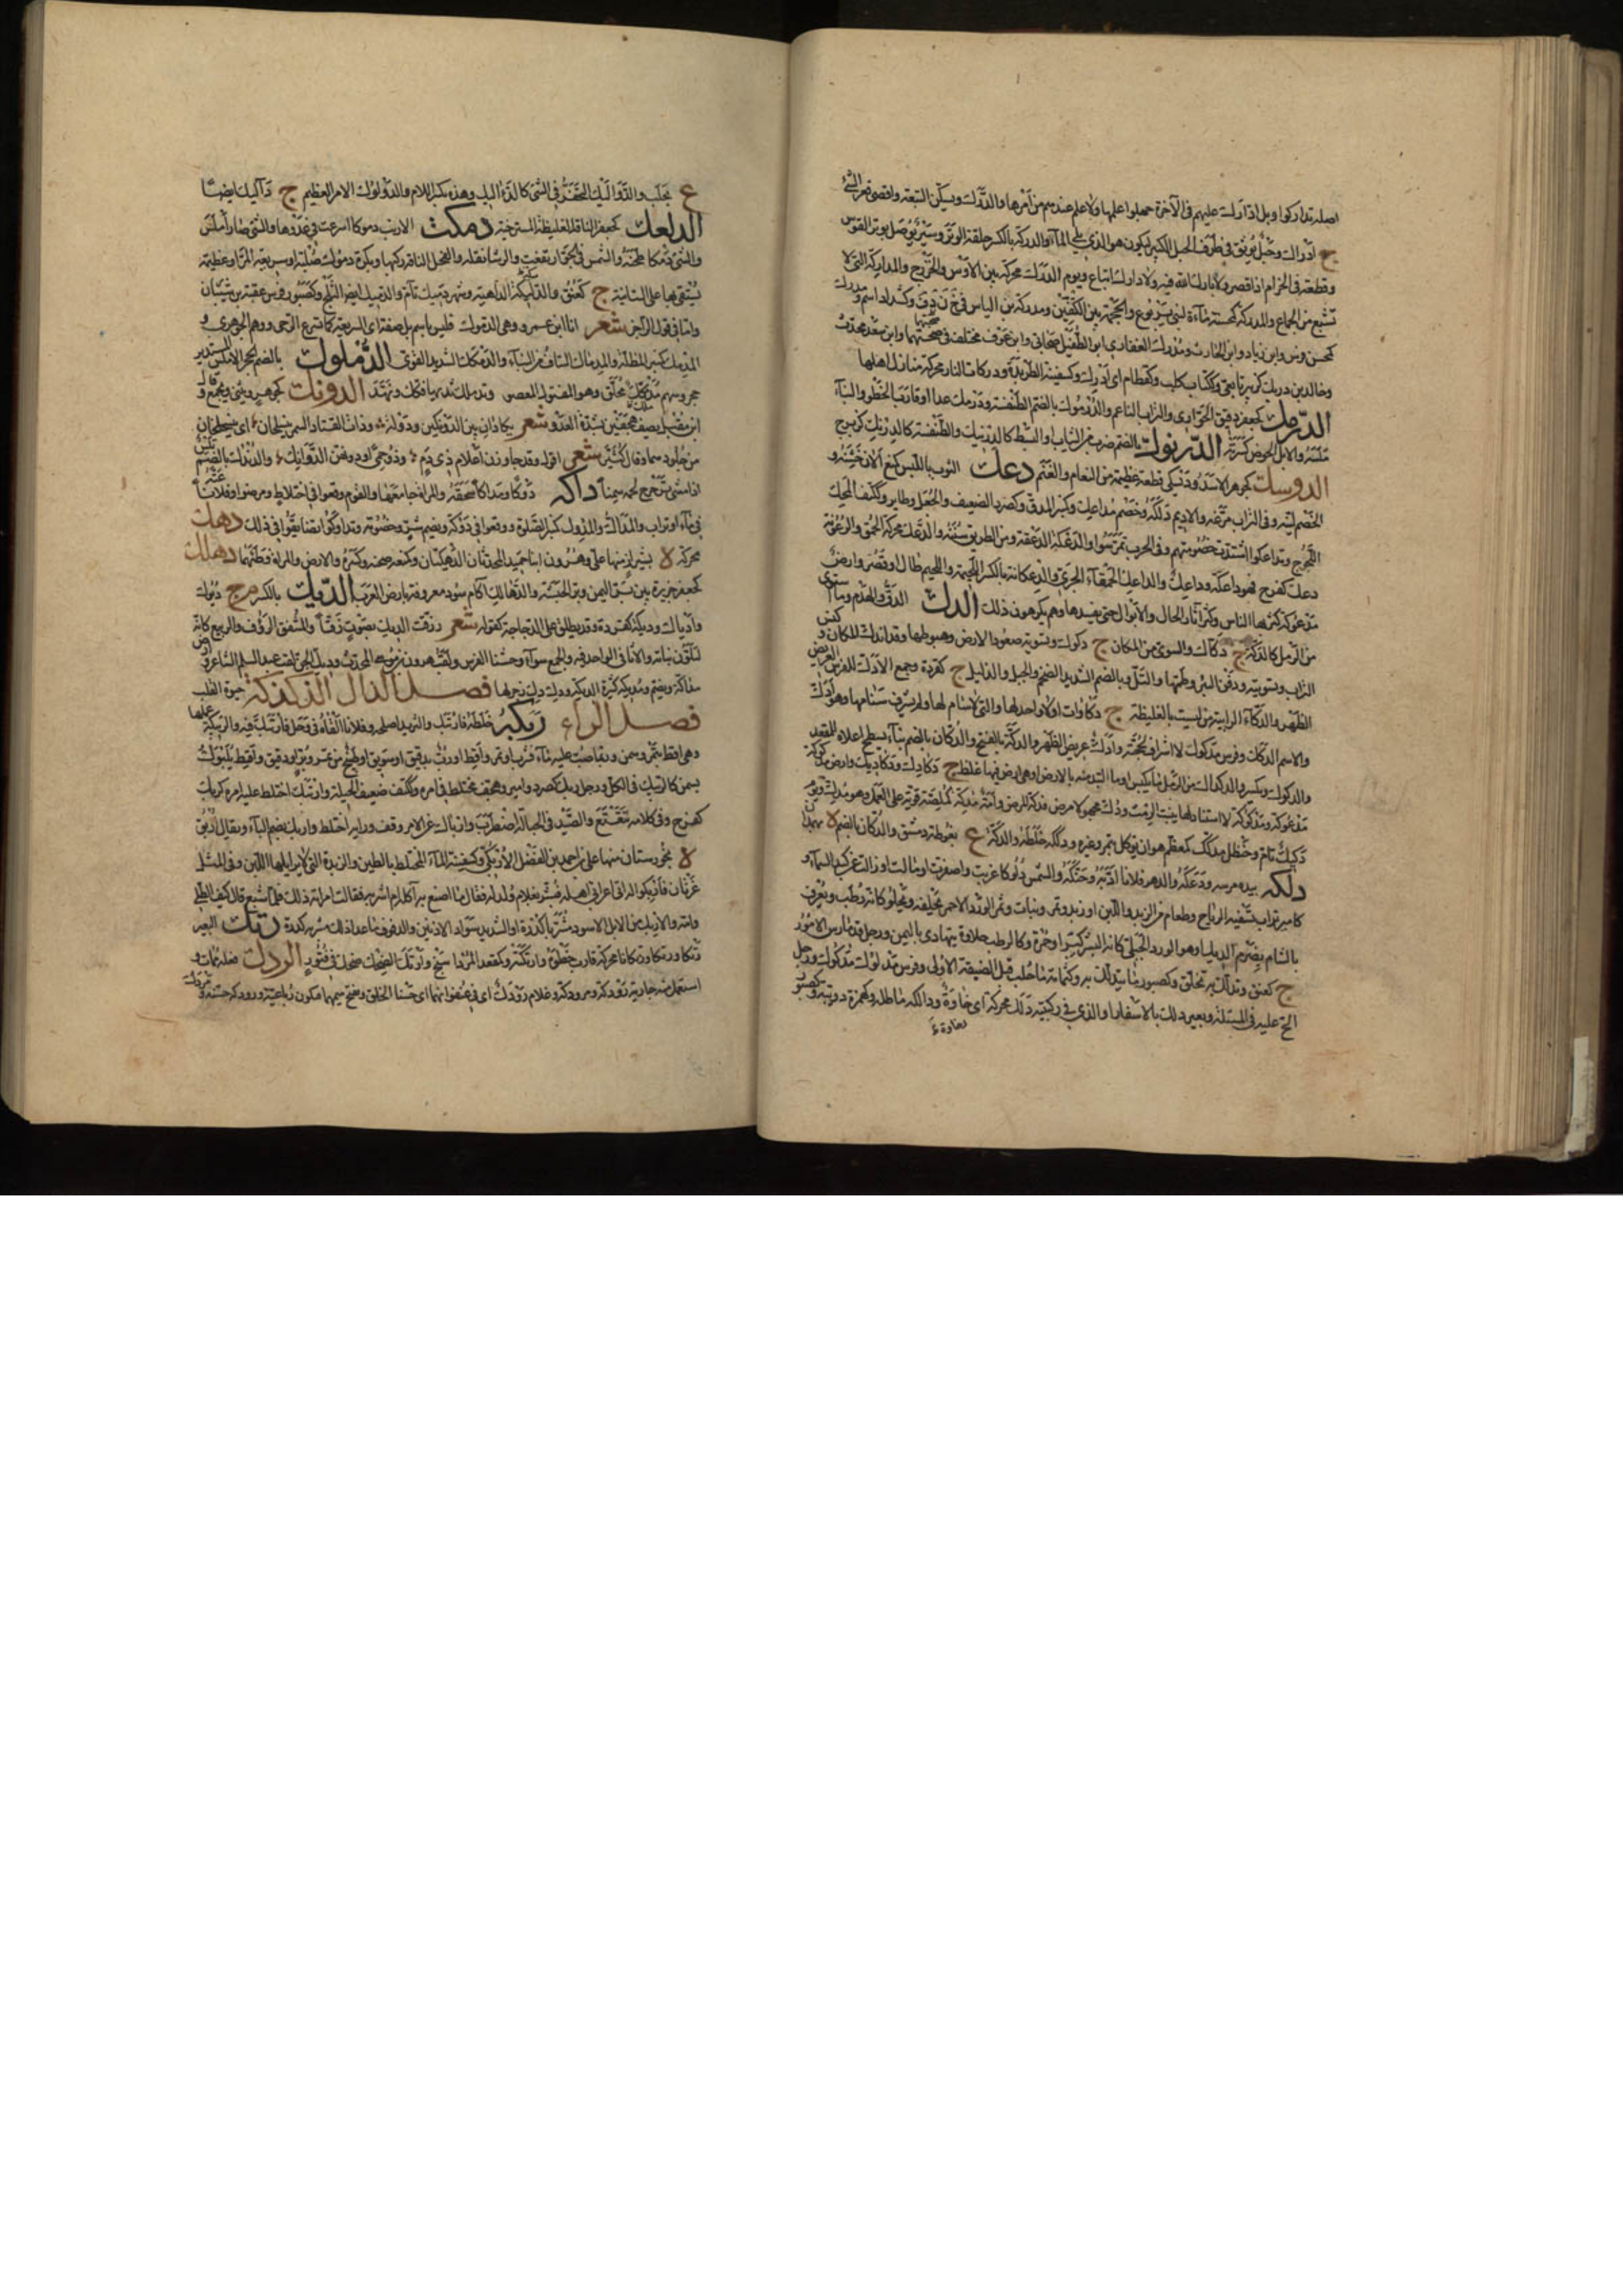 اصله تداركوا وبل ادارك علمهم فى الآخرة جهلوا علمها ولا علم عندهم من أمرها والدرك ويسكن التبعة واقصى قعر الشئ
ج ادراك وحبل يوثق فى طرف الحبل الكبير ليكون هو الذى يلى الماء والدركة بالكسر حلقة الوتر وسير يوصل بوتر القوس
وقطعة فى الحزام اذا قصر ولا بارك الله فيه ولا دارك اتباع ويوم الدرك محركة بين الأوس والخزرج والمداركة التى لا
تشبع من الجماع والمدركة كمحسنة ماءة لبنى يربوع والحجمة بين الكتفين ومدركة بن الياس فى خ ن د ف وكشداد اسم ومدرك
كمحسن فرس وابن زياد وابن الحارث ومدرك الغفارى ابن الطفيل صحابى وابن عوف مختلف فى صحبتهما وابن سعد محدث
وخالد بن دريك كزبير تابعى وككتاب كلب وكقطام اى ادرك وكسفينة الطريدة ودركات النار محركة منازل اهلها
الدرمك كجعفر دقيق الحوارى والتراب الناعم والدرموك بالضم الطنفسة ودرمك عدا اوقارب الخطو والبناء
ملسه والابل الحوض كسرته الدرنوك بالضم ضرب من الثياب او البسط كالدرنيك والطنفسة كالدرنك كزبرج
الدوسك كجوهر الاسد ودسكى قطعة عظيمة من النعام والغنم دعك الثوب باللبس كمنع الان خشنه و
الخصم لينه وفى التراب مرغه والاديم دلكه وخصم مداعك وكمنبر المدق وكصرد الضعيف والجعل وطاير وككتف المحك
اللجوج وتداعكوا اشتدت خصومتهم وفى الحرب تمرسوا والدعكة الدعقة ومن الطريق سننه والدعك محركة الحمق والرعونة
دعك كفرح فهو داعكة وداعك والداعك الحمقاء الجريئة والدعكانة بالكسر اللحيمة واللحيم طال او قصر وارض
مدعوكة كثر بها الناس وكثر اثار المال والابوال حتى يفسدها وهم يكرهون ذلك الدك الدق والهدم وما استوى
من الرمل كالدكة ج دكاك والمستوى من المكان ج دكوك وتسوية صعود الارض وهبوطها وقد اندك المكان وكبس
التراب وتسويته ودفن البئر وطمها والتل وبالضم الشديد الضخم والجبل الذليل ج كقردة وجمع الادك للفرس العريض
الظهر والدكاء الرابية من الطين ليست بالغليظة ج دكاوات او لا واحد لها والتى لا سنام لها او لم يشرف سنامها وهو ادك
والاسم الدكك وفرس مدكوك لا اشراف لحجبته وادك عريض الظهر والدكة بالفتح والدكان بالضم بناء يسطح اعلاه للمقعد
والدكوك ويكسر والدكداك من الرمل ما تكبس او ما التبد منه بالارض او هى ارض فيها غلظ ج دكادك ودكاديك وارض مدكوكة
مدعوكة ومدكوكة لا اسناد لها ينبت الرمث ودك مجهولا مرض ودكه المرض وامة مدكة كمصكة قوية على العمل وهو مدك ويوم
دكيك تام وحنظل مدكك كمعظم هو ان يؤكل بتمر وغيره ودككه خلطه والدكة ع بغوطة دمشق والدكان بالضم لا بهمدان
دلكه بيده مرسه ودعكه والدهر فلانا ادبه وحنكه والشمس دلوكا غربت واصفرت او مالت او زالت عن كبد السماء و
كامير تراب تسفيه الرياح وطعام من الزبد واللبن او زبد وتمر ونبات وثمر الورد الاحمر يخلفه ويحلو كانه رطب ويعرف
بالشام بصرم الديك او هو الورد الجبلى كانه البسر كبرا وحمرة وكالرطب حلاوة يتهادى باليمن ورجل قد مارس الامور
ج كعنق وتدلك به تخلق وكصبور ما يتدلك به وكثمامة ما حلب قبل الفيقة الاولى وفرس مدلوك مدكوك ورجل
الح عليه فى المسئلة وبعير دلك بالاسفار او الذى فى ركبتيه دلك محركة اى رخاوة ودالكه ماطله وكهمزة دويبة وكصبو
ع بحلب والدواليك التحفز فى المشى كالدءاليك وهذه بكسر اللام والدؤلوك الامر العظيم ج دآليك ايضا
الدلعك كجعفر الناقة الغليظة المسترخية دمكت الارنب دموكا اسرعت فى عدوها والشئ صار املس
والشئ دمكا طحنه والشمس فى الجو ارتفعت والرشا فتله والفحل الناقة ركبها وبكرة دموك صلبة او سريعة المر او عظيمة
يستقى بها على السانية ج كعنق والدامكة الداهية وشهر دميك تام والدميك ايضا الثلج وكصبور فرس عقبة بن سنان
واما فى قول الراجز شعر انا ابن عمرو وهى الدموك فليس باسم بل صفة اى السريعة كما تسرع الرحى ووهم الجوهرى و
المدمك كمنبر المطلة والمدماك الساف من البناء والدمكمك الشديد القوى الدملوك بالضم الحجر الاملس المستدير
حجر وسهم مدملك مخلق وهو المفتول المعصوب وتدملك ثديها فلك ونهد الدونك كجوهر ويثنى ويجمع و قال
ابن مقبل يصف هجفين شدة العدو شعر يكادان بين الدونكين ودولة وذات القتاد السمر ينسلخان اى ينسلخان
من جلودهما وقال كثير شعر اقول وقد جاوزن اعلام ذى دم وذو وجمى او دونهن الدوانك والدندك بالضم
اذا مشى ترجرج لحمه سمينا داكه دوكا ومداكا سحقه والمراة جامعها والقوم وقعوا فى اختلاط ومرضوا وفلانا غته
فى ماء او تراب والمداك والمدوك كمنبر الصلاية ووقعوا فى دوكة ويضم شر وخصومة وتداوكوا تضايقوا فى ذلك دهك
محركة لا بشيراز منها على وهرون ابنا حميد المحدثان الدهكيان وكمنعه طحنه وكسره والارض والمراة وطئها دهلك
كجعفر جزيرة بين بر اليمن وبر الحبشة والدهالك آكام سود معروفة بارض العرب الديك بالكسر م ج ديوك
واديال وديكة كقردة وقد يطلق على الدجاجة كقوله شعر وزقت الديك بصوت زقا والمشفق الرؤف والربيع كانه
لتلون نباته والاثافى الواحد فيه والجمع سواء وخشنا الفرس ولقب هرون بن موسى المحدث وديك الجن لقب عبد السلام الشاعر وارض
مداكة ويضم ومديكة كثيرة الديكة وديك ديك زجر لها فصل الذال الذكذكة حيوة القلب
فصل الراء ربكه خلطه فارتبك والثريد اصلحه وفلانا القاه فى وحل فارتبك فيه والربيكة عملها
وهى اقط بتمر وسمن وربما صب عليه ماء فشرب او تمر واقط او رب بدقيق او سويق او طبيخ من تمر وبر او دقيق واقط يلبك
بسمن كالربيك فى الكل ورجل ربك كصرد وامير وهجف مختلط فى امره وككتف ضعيف الحيلة وارتبك اختلط عليه امره كربك
كفرح وفى كلامه تتعتع والصيد فى الحبالة اضطرب وارباك عن الامر وقف ورايه اختلط واربك بضم الباء ويقال اربق
لا بخوزستان منها على بن احمد بن الفضل الاربكى وكسفينة الماء المختلط بالطين والزبدة التى لا يزايلها اللبن وفى المثل
غرثان فاربكوا له اتى اعرابى اهله فبشر بغلام ولد له فقال ما اصنع به آكله ام اشربه فقالت امراته ذلك فلما شبع قال كيف الطلا
وامه والاربك من الابل الاسود مشربا كدرة او الشديد سواد الاذنين والدفوف وما عدا ذلك مشرب كدرة رتك البعير
رتكا ورتكا ورتكانا محركة قارب خطوه وارتكته وكمقعد المرداسنج وارتك الضحك ضحك فى فتور الرودك فعله ممات و
استعمل منه جارية رودكة ومرودكة وغلام رودك اى فى عنفوانهما اى حسنا الخلق وفتح ميمهما فتكون رباعية ورودكه حسنه و